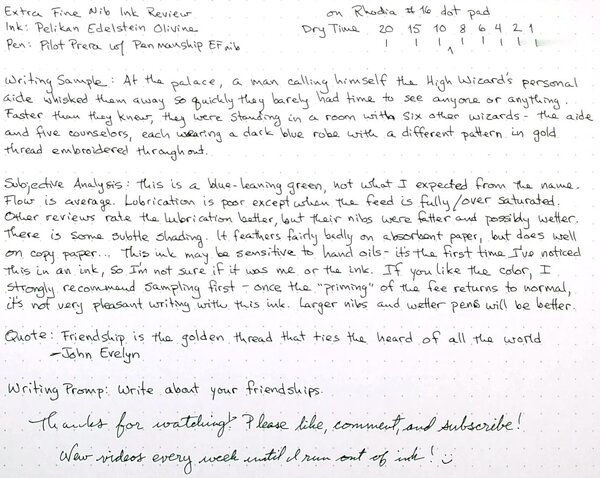 Extra Fine Nib Ink Review on Rhodia #16 dot pad
Ink: Pelikan Edelstein Olivine Dry Time 20 15 10 8 6 4 2 1
Pen: Pilot Prera w/ Penmanship EF nib
Writing Sample: At the palace, a man calling himself the High Wizard's personal
aide whisked them away so quickly they barely had time to see anyone or anything.
Faster than they knew, they were standing in a room with six other wizards - the aide
and five counselors, each wearing a dark blue robe with a different pattern in gold
thread embroidered throughout.
Subjective Analysis: This is a blue-leaning green, not what I expected from the name.
Flow is average. Lubrication is poor except when the feed is fully/over saturated.
Other reviews rate the lubrication better, but their nibs were fatter and possibly wetter.
There is some subtle shading. It feathers fairly badly on absorbent paper, but does well
on copy paper... This ink may be sensitive to hand oils - it's the first time I've noticed
this in an ink, so I'm not sure if it was me or the ink. If you like the color, I
strongly recommend sampling first - once the "priming" of the fee returns to normal,
it's not very pleasant writing with this ink. Larger nibs and wetter pens will be better.
Quote: Friendship is the golden thread that ties the heard of all the world
- John Evelyn
Writing Promp: Write about your friendships.
Thanks for watching! Please like, comment, and subscribe!
New videos every week until I run out of ink!